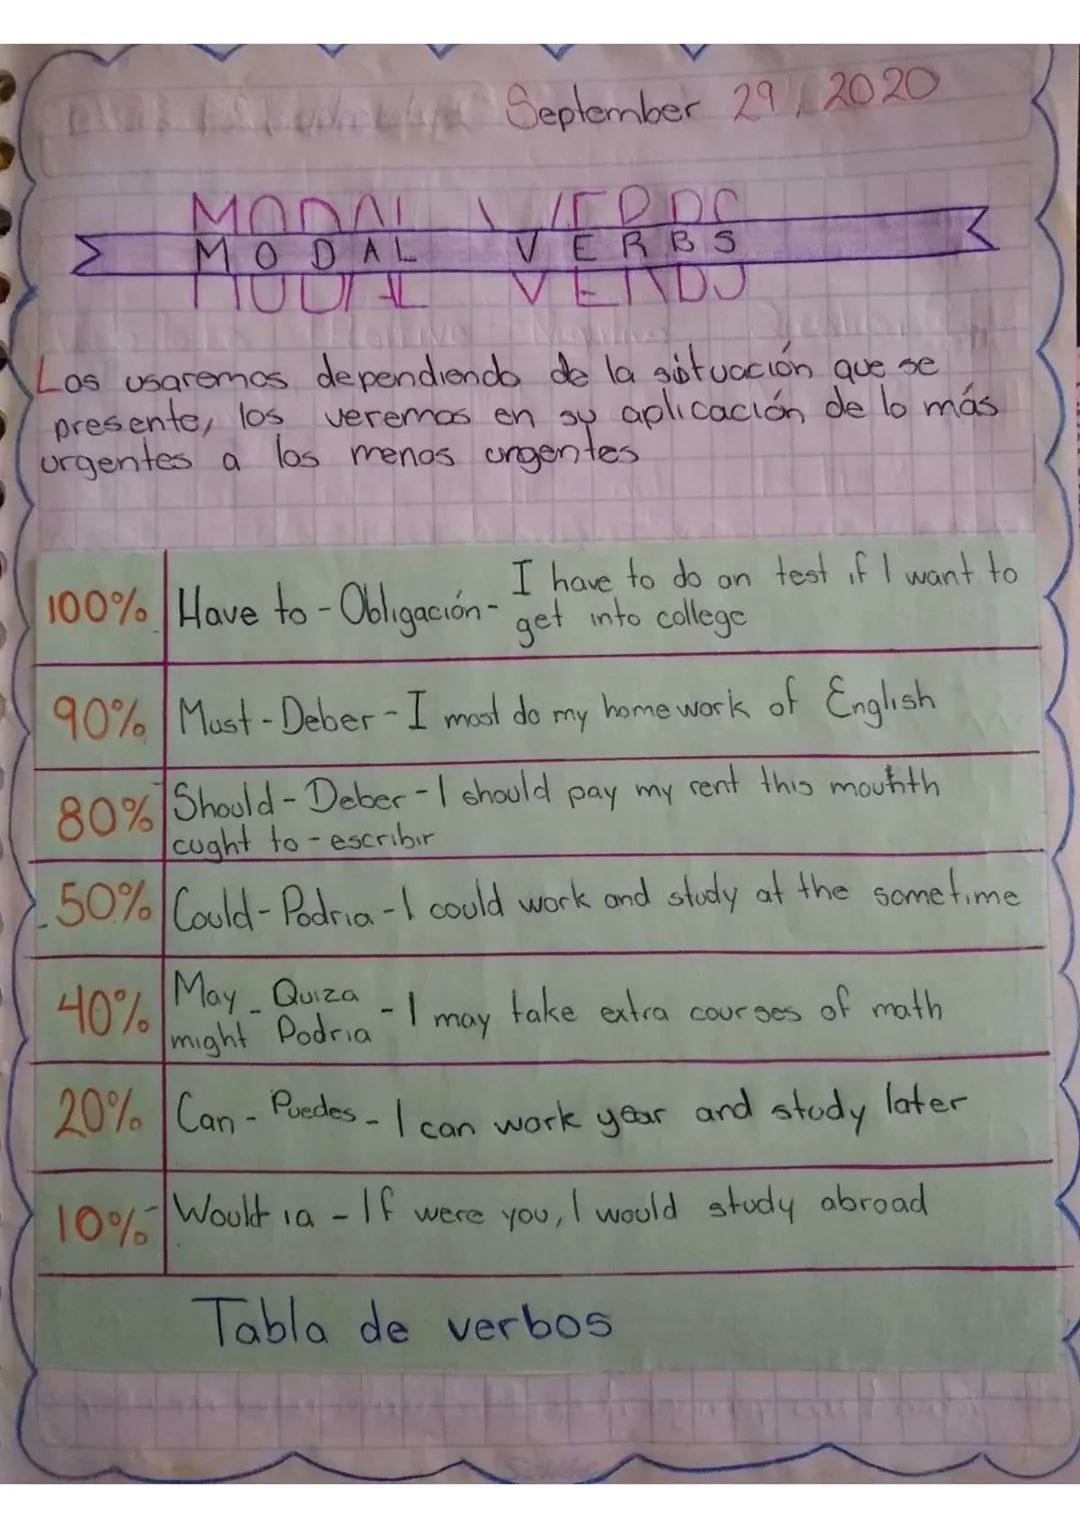 September 29, 2020
MODAL VERBS
Los usaremos dependiendo de la situación que se
presente, los veremos en su aplicación de lo más
urgentes a los menos urgentes
100% Have to - Obligación - I have to do an test if I want to
get into college
90% Must - Deber - I most do my homework of English
80% Should - Deber - I should pay my rent this mounth
cught to - escribir
50% Could - Podria - I could work and study at the sometime
40% May - Quiza - I may take extra courses of math
might Podria
20% Can - Puedes - I can work year and study later
10% Would ia - If were you, I would study abroad
Tabla de verbos